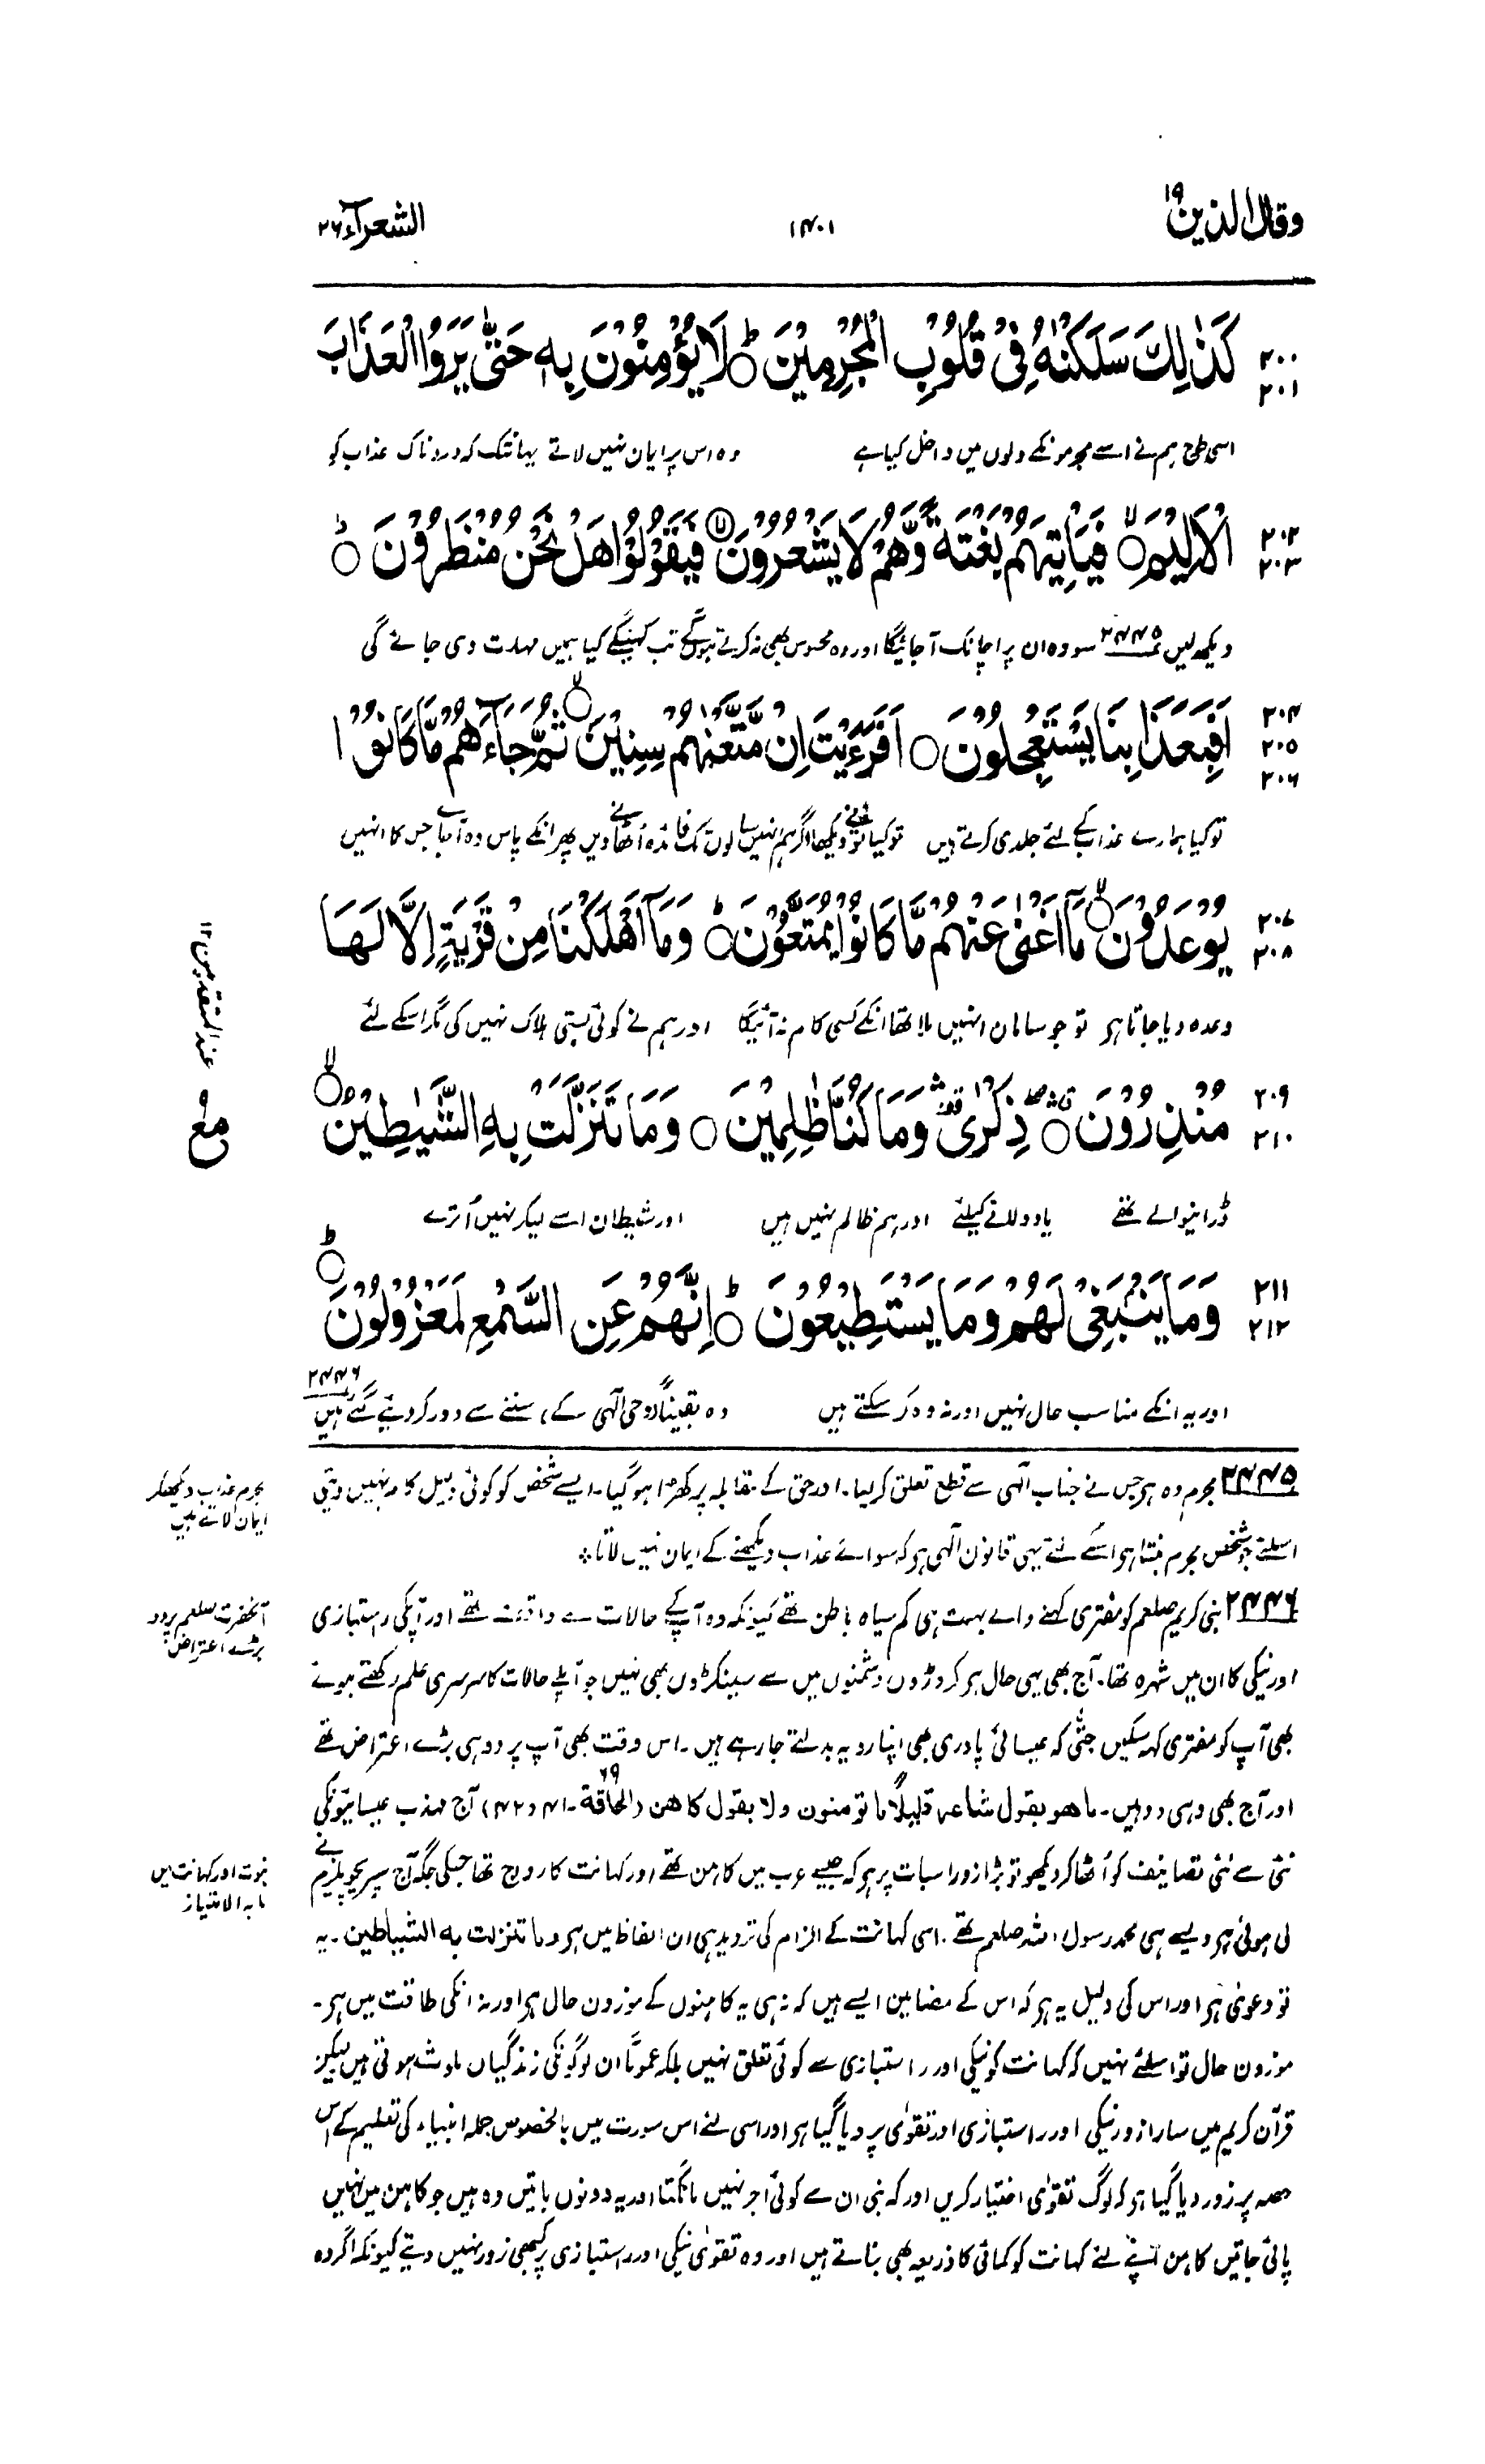 وقال الذین ۱۹
۱۴۰۱
الشعرآء ۲۶
۲۰۰
۲۰۱
كَذٰلِكَ سَلَكْنٰهُ فِیْ قُلُوْبِ الْمُجْرِمِیْنَ ۝ؕ لَا یُؤْمِنُوْنَ بِهٖ حَتّٰی یَرَوُا الْعَذَابَ
اسی طرح ہم نے اسے مجرمونکے دلوں میں داخل کیا ہے وہ اس پر ایمان نہیں لاتے یہانتک کہ دردناک عذاب کو
۲۰۲
۲۰۳
الْاَلِیْمَ ۝ۙ فَیَاْتِیَهُمْ بَغْتَةً وَّهُمْ لَا یَشْعُرُوْنَ ۝ۙ فَیَقُوْلُوْا هَلْ نَحْنُ مُنْظَرُوْنَ ۝ؕ
دیکھ لیں ۲۴۴۵ سو وہ ان پر اچانک آجائیگا اور وہ محسوس بھی نہ کرتے ہونگے تب کہینگے کیا ہمیں مہلت دی جائے گی
۲۰۴
۲۰۵
۲۰۶
اَفَبِعَذَابِنَا یَسْتَعْجِلُوْنَ ۝ اَفَرَءَیْتَ اِنْ مَّتَّعْنٰهُمْ سِنِیْنَ ۝ۙ ثُمَّ جَآءَهُمْ مَّا كَانُوْا
تو کیا ہمارے عذاب کے لئے جلدی کرتے ہیں تو کیا تو نے دیکھا اگر ہم انہیں سالوں تک فائدہ اُٹھانے دیں پھر انکے پاس وہ آجائے جس کا انہیں
۲۰۷
۲۰۸
یُوْعَدُوْنَ ۝ۙ مَآ اَغْنٰی عَنْهُمْ مَّا كَانُوْا یُمَتَّعُوْنَ ۝ؕ وَمَآ اَهْلَكْنَا مِنْ قَرْیَةٍ اِلَّا لَهَا
وعدہ دیا جاتا ہے تو جو سامان انہیں ملا تھا انکے کسی کام نہ آئیگا اور ہم نے کوئی بستی ہلاک نہیں کی مگر اسکے لئے
۲۰۹
۲۱۰
مُنْذِرُوْنَ ۝ ذِكْرٰی وَمَا كُنَّا ظٰلِمِیْنَ ۝ وَمَا تَنَزَّلَتْ بِهِ الشَّیٰطِیْنُ ۝ۙ
ڈرانیوالے تھے یاد دلانے کیلئے اور ہم ظالم نہیں ہیں اور شیطان اسے لیکر نہیں اُترے
مع عند المتقدمین ۱۲
۲۱۱
۲۱۲
وَمَا یَنْۢبَغِیْ لَهُمْ وَمَا یَسْتَطِیْعُوْنَ ۝ؕ اِنَّهُمْ عَنِ السَّمْعِ لَمَعْزُوْلُوْنَ ۝ؕ
اور یہ انکے مناسب حال نہیں اور نہ وہ کر سکتے ہیں وہ یقیناً (وحی الٰہی کے) سننے سے دور کر دیئے گئے ہیں ۲۴۴۶
۲۴۴۵ مجرم وہ ہے جس نے جناب الٰہی سے قطع تعلق کر لیا۔ اور حق کے مقابلہ پر کھڑا ہو گیا۔ ایسے شخص کو کوئی دلیل کام نہیں دیتی
مجرم عذاب دیکھکر
ایمان لاتے ہیں
اسلئے جو شخص مجرم بنتا ہے اسکے لئے یہی قانون الٰہی ہے کہ سوائے عذاب دیکھنے کے ایمان نہیں لاتا ؞
۲۴۴۶ نبی کریم صلعم کو مفتری کہنے والے بہت ہی کم سیاہ باطن تھے کیونکہ وہ آپ کے حالات سے واقف تھے اور آپکی راستبازی
آنحضرت صلعم پر دو
بڑے اعتراض
اور نیکی کا ان میں شہرہ تھا۔ آج بھی یہی حال ہے کروڑوں دشمنوں میں سے سینکڑوں بھی نہیں جو آپکے حالات کا سرسری علم رکھتے ہوئے
بھی آپ کو مفتری کہہ سکیں حتّٰی کہ عیسائی پادری بھی اپنا رویہ بدلتے جا رہے ہیں۔ اس وقت بھی آپ پر دو ہی بڑے اعتراض تھے
اور آج بھی وہی دو ہیں۔ ما هو بقول شاعر قلیلًا ما تومنون ولا بقول کاهن (الحاقة ۶۹۔ ۴۱ و ۴۲) آج مہذب عیسائیونکی
نئی سے نئی تصانیف کو اُٹھا کر دیکھو تو بڑا زور اسبات پر ہے کہ جیسے عرب میں کاہن تھے اور کہانت کا رواج تھا جسکی جگہ آج سپریچولیزم نے
نبوت اور کہانت میں
ما بہ الامتیاز
لی ہوئی ہے ویسے ہی محمد رسول اللہ صلعم تھے۔ اسی کہانت کے الزام کی تردید ہی ان الفاظ میں ہے وما تنزلت به الشیاطین۔ یہ
تو دعویٰ ہے اور اس کی دلیل یہ ہے کہ اس کے مضامین ایسے ہیں کہ نہ ہی یہ کاہنوں کے موزون حال ہے اور نہ انکی طاقت میں ہے۔
موزون حال تو اسلئے نہیں کہ کہانت کو نیکی اور راستبازی سے کوئی تعلق نہیں بلکہ عمومًا ان لوگونکی زندگیاں ملوث ہوتی ہیں لیکن
قرآن کریم میں سارا زور نیکی اور راستبازی اور تقویٰ پر دیا گیا ہے اور اسی لئے اس سورت میں بالخصوص جملہ انبیاء کی تعلیم کے اس
حصہ پر زور دیا گیا ہے کہ لوگ تقویٰ اختیار کریں اور کہ نبی ان سے کوئی اجر نہیں مانگتا اور یہ دونوں باتیں وہ ہیں جو کاہن میں نہیں
پائی جاتیں کاہن اپنے لئے کہانت کو کمائی کا ذریعہ بھی بناتے ہیں اور وہ تقویٰ نیکی اور راستبازی پر کبھی زور نہیں دیتے کیونکہ اگر وہ